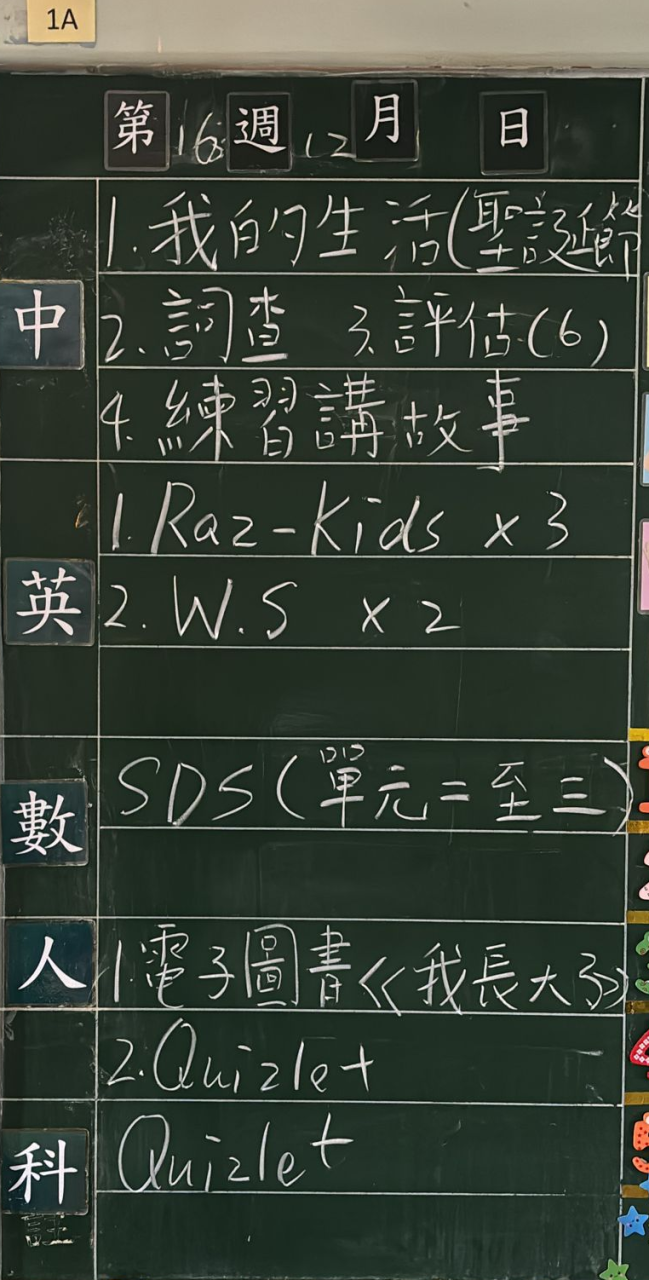 1A
第16週12月 日
中
1.我的生活(聖誕節
2.詞查 3.評估(6)
4.練習講故事
英
1.Raz-Kids x3
2.W.S x2
數
SDS(單元二至三)
人
1.電子圖書《我長大了》
2.Quizlet
科
Quizlet